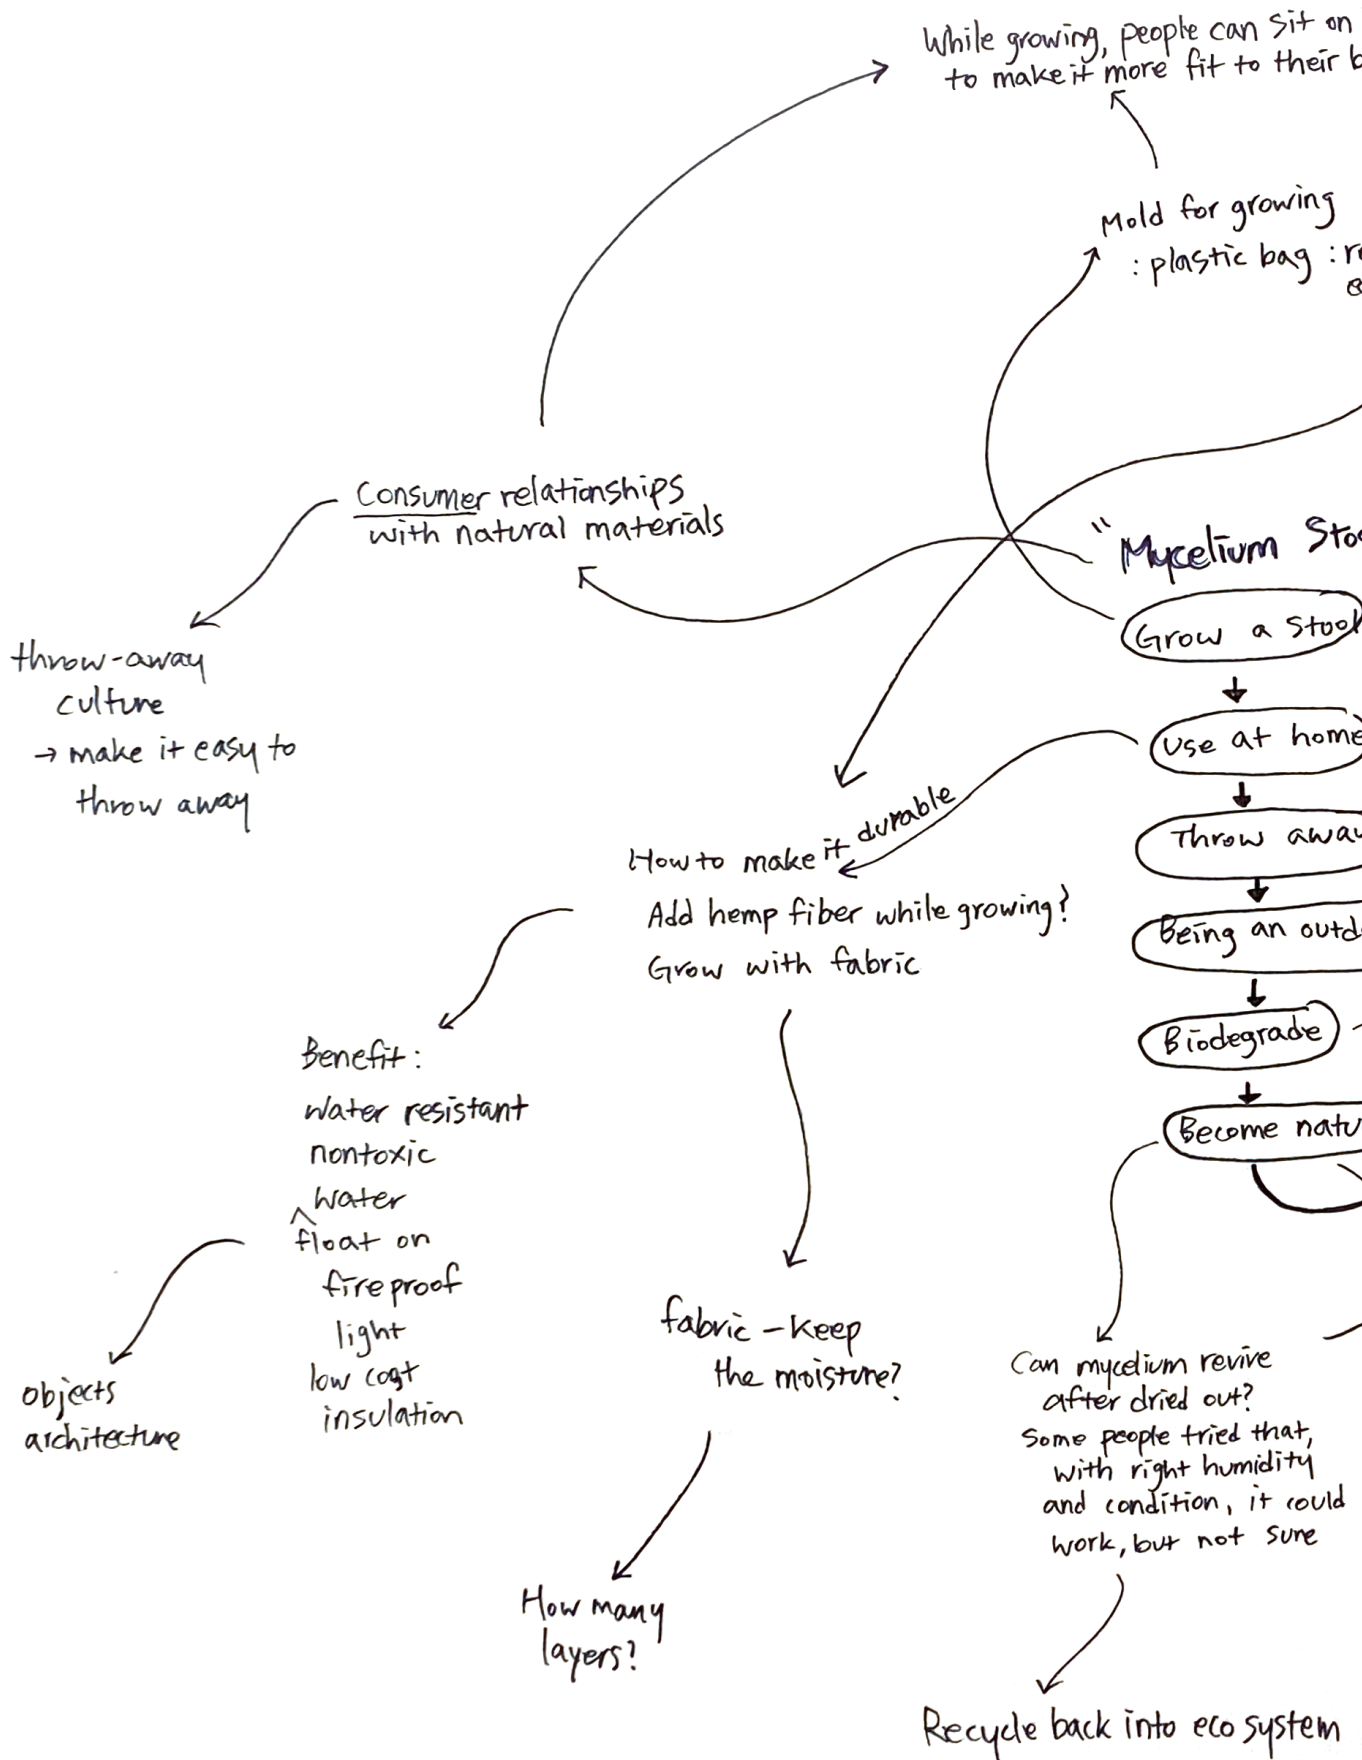 While growing, people can sit on
to make it more fit to their b
Mold for growing
: plastic bag : r
Consumer relationships
with natural materials
throw-away
culture
→ make it easy to
throw away
"Mycelium Stoo
Grow a stool
Use at home
Throw away
Being an outd
Biodegrade
Become natu
How to make it durable
Add hemp fiber while growing?
Grow with fabric
Benefit:
water resistant
nontoxic
water
^
float on
fireproof
light
low cost
insulation
objects
architecture
fabric - keep
the moisture?
How many
layers?
Can mycelium revive
after dried out?
Some people tried that,
with right humidity
and condition, it could
work, but not sure
Recycle back into eco system